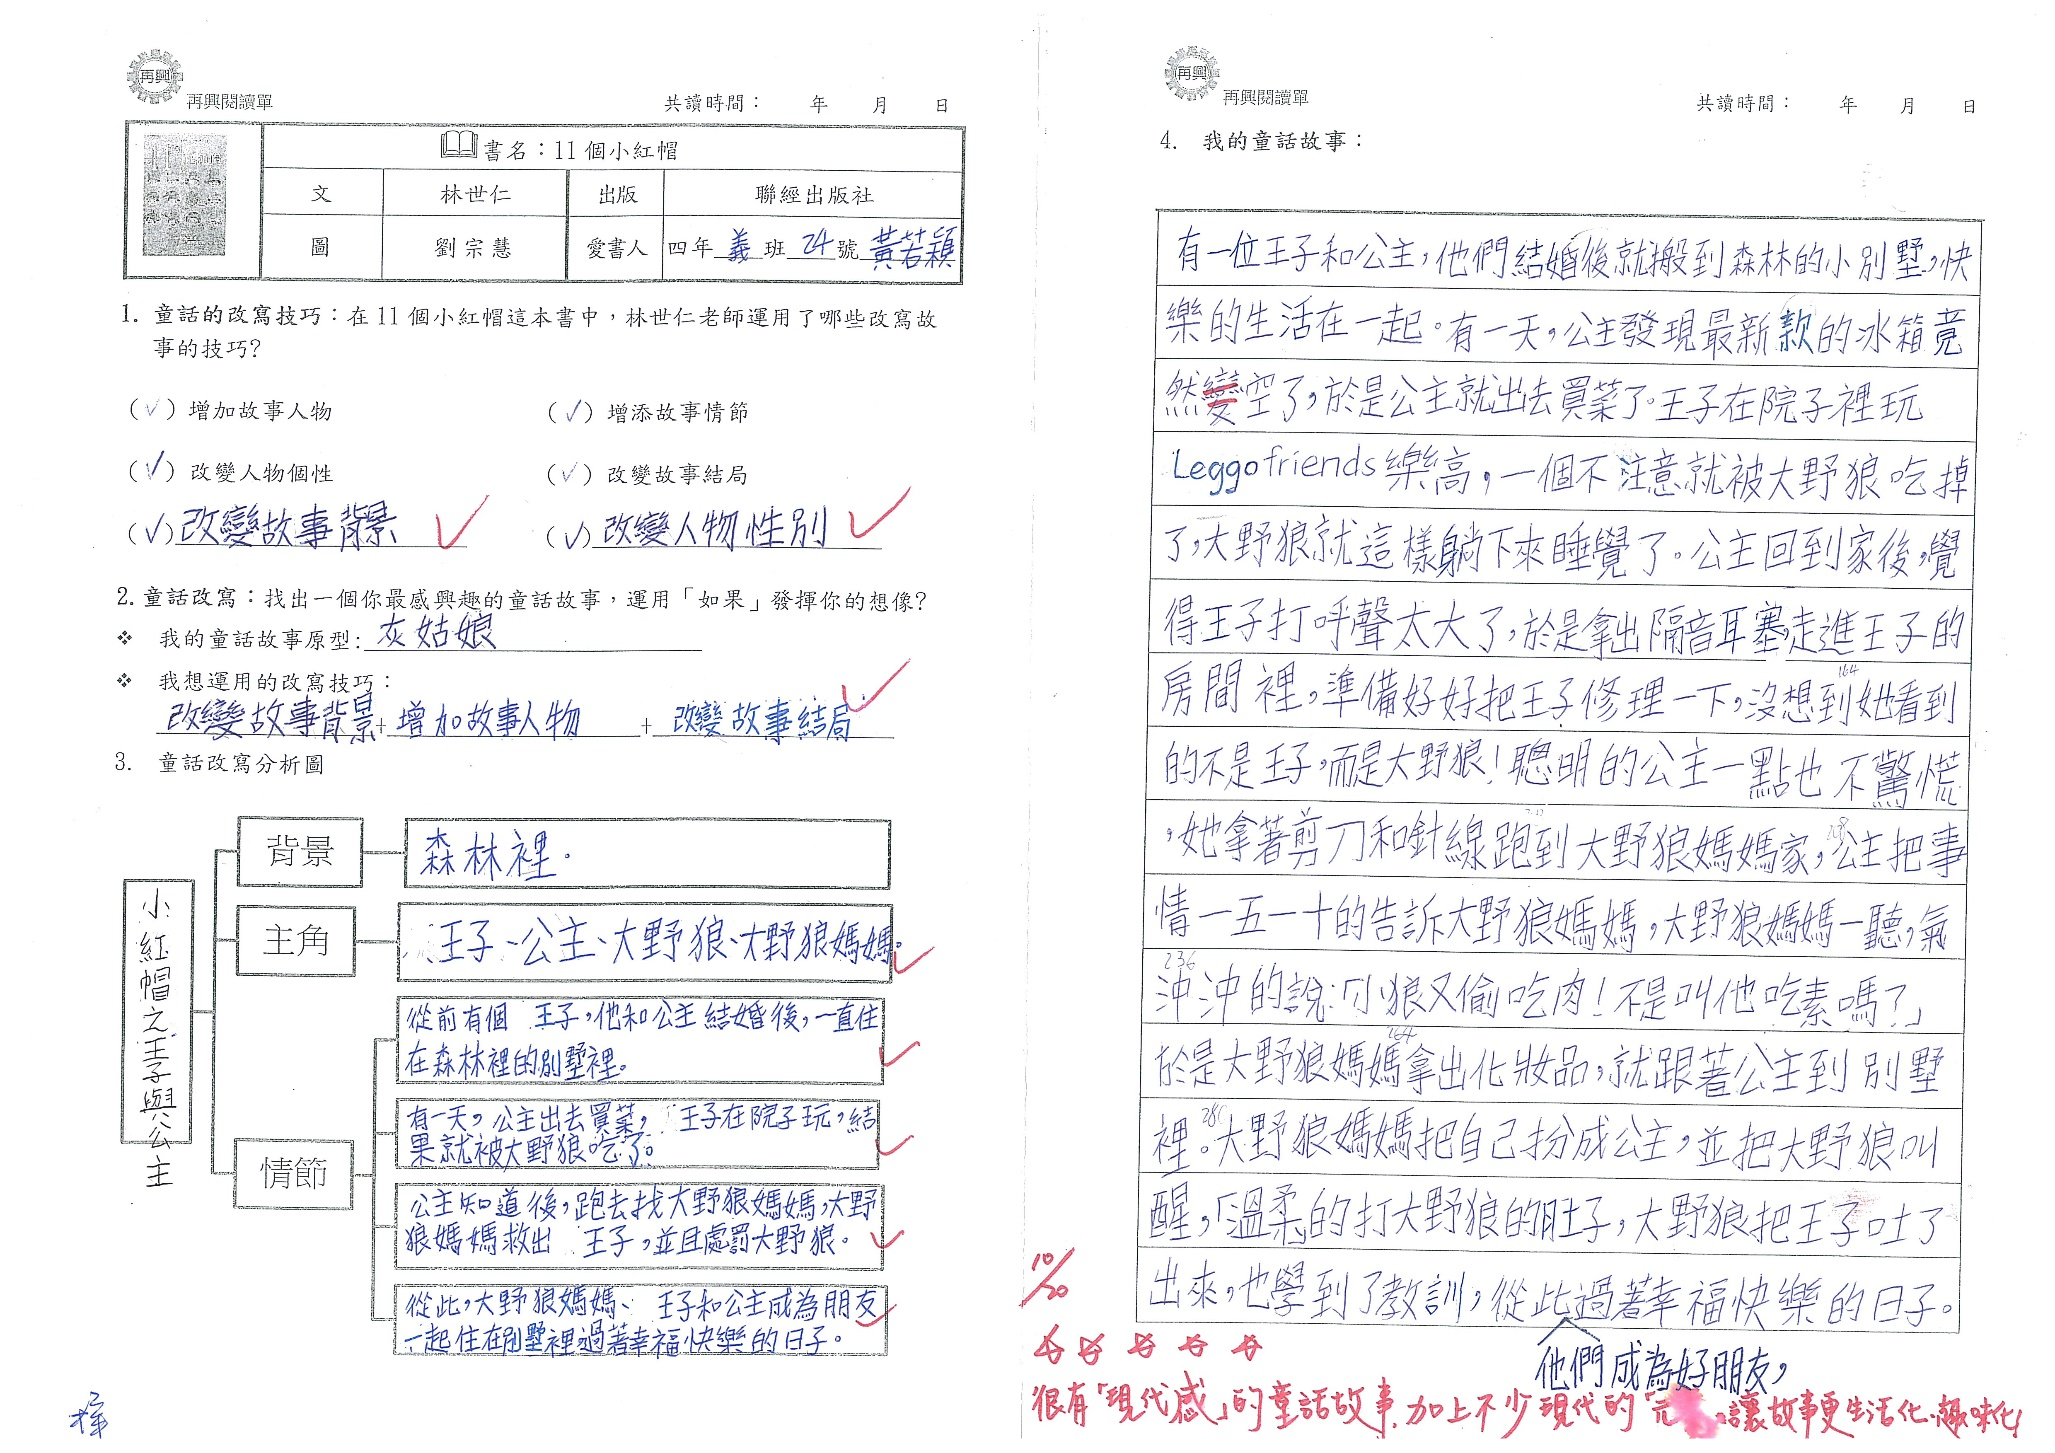 再興
再興閱讀單
共讀時間： 年 月 日
書名：11 個小紅帽
文 林世仁 出版 聯經出版社
圖 劉宗慧 愛書人 四年義班24號黃若穎
1. 童話的改寫技巧：在 11 個小紅帽這本書中，林世仁老師運用了哪些改寫故
事的技巧？
(✓) 增加故事人物 (✓) 增添故事情節
(✓) 改變人物個性 (✓) 改變故事結局
(✓) 改變故事背景 (✓) 改變人物性別
2. 童話改寫：找出一個你最感興趣的童話故事，運用「如果」發揮你的想像？
❖ 我的童話故事原型: 灰姑娘
❖ 我想運用的改寫技巧：
改變故事背景 + 增加故事人物 + 改變故事結局
3. 童話改寫分析圖
小紅帽之王子與公主
背景
森林裡.
主角
王子、公主、大野狼、大野狼媽媽。
情節
從前有個 王子，他和公主結婚後，一直住
在森林裡的別墅裡。
有一天，公主出去買菜， 王子在院子玩，結
果就被大野狼吃了。
公主知道後，跑去找大野狼媽媽，大野
狼媽媽救出 王子，並且處罰大野狼。
從此，大野狼媽媽、 王子和公主成為朋友
一起住在別墅裡過著幸福快樂的日子。
再興
再興閱讀單
共讀時間： 年 月 日
4. 我的童話故事：
有一位王子和公主，他們結婚後就搬到森林的小別墅，快
樂的生活在一起。有一天，公主發現最新款的冰箱竟
然變空了，於是公主就出去買菜了。王子在院子裡玩
Leggo friends 樂高，一個不注意就被大野狼吃掉
了，大野狼就這樣躺下來睡覺了。公主回到家後，覺
得王子打呼聲太大了，於是拿出隔音耳塞，走進王子的
房間裡，準備好好把王子修理一下，沒想到她看到
164
的不是王子，而是大野狼！聰明的公主一點也不驚慌
，她拿著剪刀和針線跑到大野狼媽媽家，公主把事
情一五一十的告訴大野狼媽媽，大野狼媽媽一聽，氣
236
沖沖的說：「小狼又偷吃肉！不是叫他吃素嗎？」
於是大野狼媽媽拿出化妝品，就跟著公主到別墅
裡。大野狼媽媽把自己扮成公主，並把大野狼叫
醒，「溫柔」的打大野狼的肚子，大野狼把王子吐了
出來，也學到了教訓，從此過著幸福快樂的日子。
他們成為好朋友，
10/20
☆ ☆ ☆ ☆ ☆
很有「現代感」的童話故事，加上不少現代的「元 讓故事更生活化、趣味化